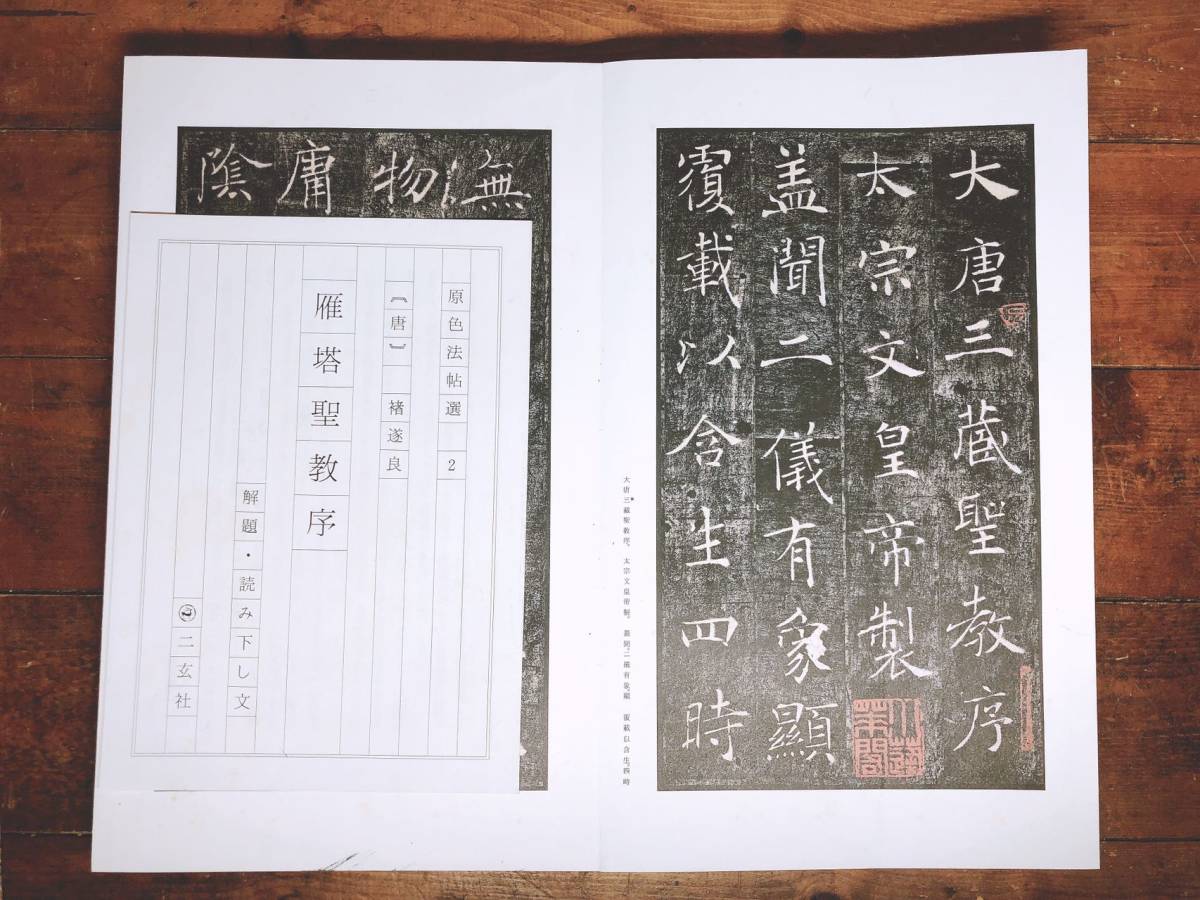 大唐三蔵聖教序
太宗文皇帝製
盖聞二儀有象顯
覆載以含生四時
大唐三蔵聖教序。太宗文皇帝製。蓋聞、二儀有象、顯覆載以含生。四時
無
物
庸
陰
原色法帖選 2
〔唐〕 褚遂良
雁塔聖教序
解題・読み下し文
二玄社